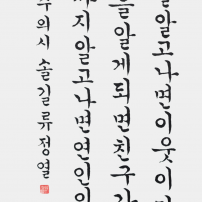 알고나면이웃이
을알게되면친구가
까지알고나면연인이
주의시 솔길 류정열